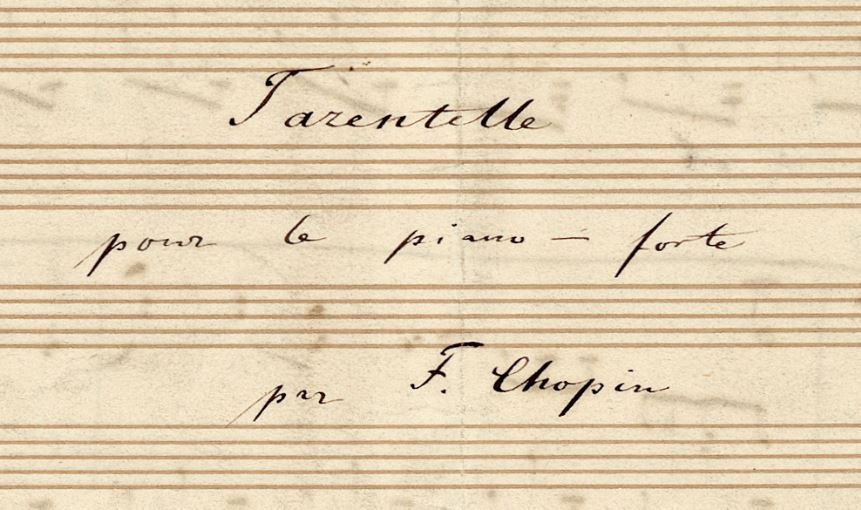 Tarentelle
pour le piano - forte
par F. Chopin